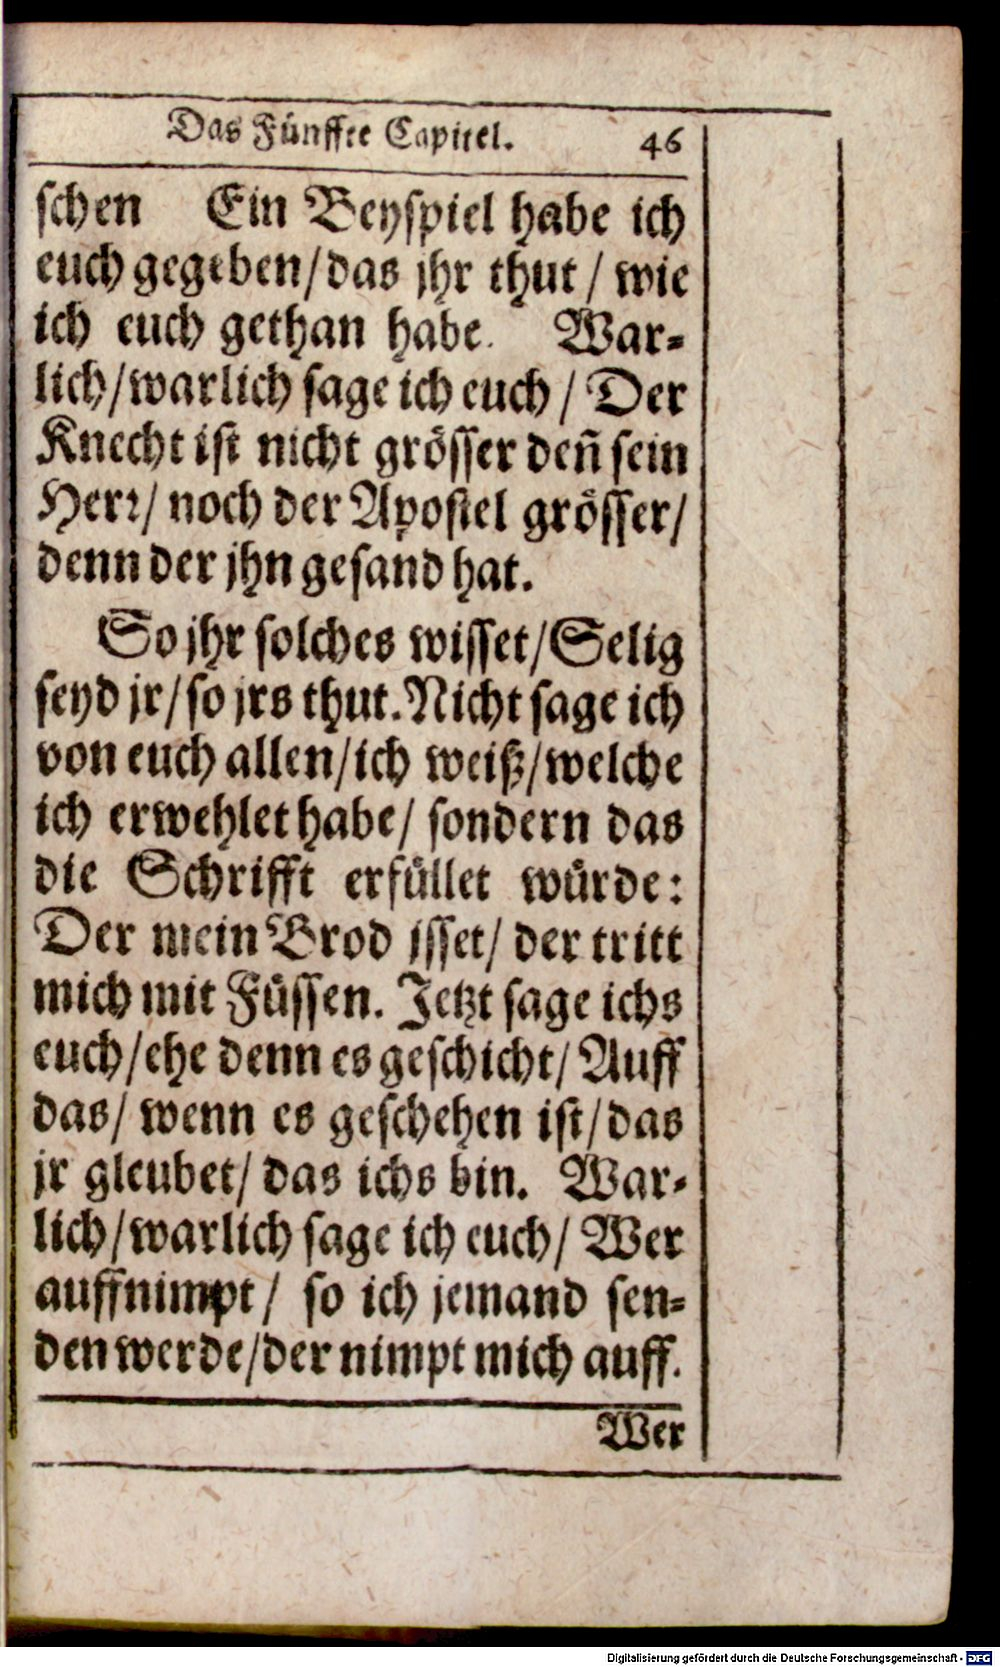 Das Fünffte Capitel. 46
schen Ein Beyspiel habe ich
euch gegeben/das jhr thut / wie
ich euch gethan habe. War-
lich/warlich sage ich euch / Der
Knecht ist nicht grösser deñ sein
Herr/ noch der Apostel grösser/
denn der jhn gesand hat.
So jhr solches wisset/Selig
seyd jr/so jrs thut. Nicht sage ich
von euch allen/ich weiß/welche
ich erwehlet habe/ sondern das
die Schrifft erfüllet würde:
Der mein Brod jsset/ der tritt
mich mit Füssen. Jetzt sage ichs
euch/ehe denn es geschicht/ Auff
das/ wenn es geschehen ist/das
jr gleubet/ das ichs bin. War-
lich/warlich sage ich euch/ Wer
auffnimpt/ so ich jemand sen-
den werde/der nimpt mich auff.
Wer
Digitalisierung gefördert durch die Deutsche Forschungsgemeinschaft - DFG